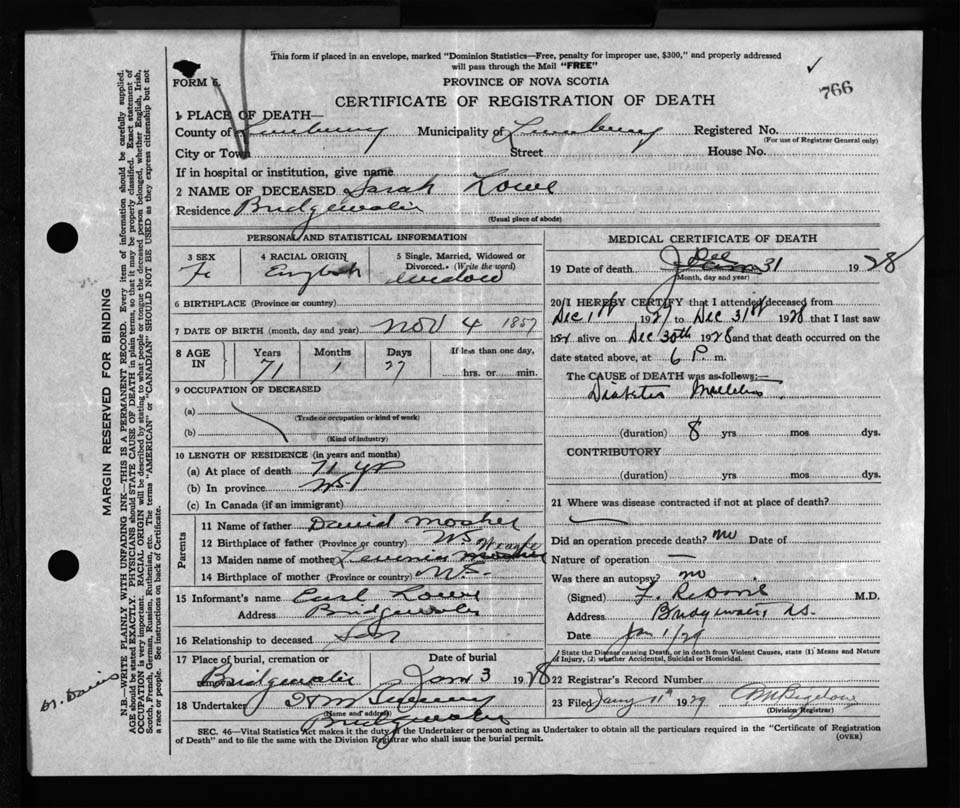 This form if placed in an envelope, marked "Dominion Statistics—Free, penalty for improper use, $300," and properly addressed
will pass through the Mail "FREE"
766
FORM 6.
PROVINCE OF NOVA SCOTIA
CERTIFICATE OF REGISTRATION OF DEATH
1. PLACE OF DEATH—
County of Lunenburg Municipality of Lunenburg Registered No.
(For use of Registrar General only)
City or Town Street House No.
If in hospital or institution, give name
2 NAME OF DECEASED Sarah Lowe
Residence Bridgewater
(Usual place of abode)
PERSONAL AND STATISTICAL INFORMATION
3 SEX 4 RACIAL ORIGIN 5 Single, Married, Widowed or
Divorced. (Write the word)
Fe English widow
6 BIRTHPLACE (Province or country)
7 DATE OF BIRTH (month, day and year) Nov 4 1857
8 AGE IN Years Months Days If less than one day,
71 1 27 hrs. or min.
9 OCCUPATION OF DECEASED
(a)
(Trade or occupation or kind of work)
(b)
(Kind of industry)
10 LENGTH OF RESIDENCE (in years and months)
(a) At place of death 71 yr
(b) In province NS
(c) In Canada (if an immigrant)
Parents
11 Name of father David Mosher
12 Birthplace of father (Province or country) NS
13 Maiden name of mother Mosher
14 Birthplace of mother (Province or country) NS
15 Informant's name Earl Lowe
Address Bridgewater
16 Relationship to deceased Son
17 Place of burial, cremation or Date of burial
removal Bridgewater Jan 3 1928
18 Undertaker
(Name and address)
Bridgewater
MEDICAL CERTIFICATE OF DEATH
19 Date of death Dec 31 1928
(Month, day and year)
20 I HEREBY CERTIFY that I attended deceased from
Dec 1st 1927 to Dec 31st 1928 that I last saw
her alive on Dec 30th 1928 and that death occurred on the
date stated above, at 6 P. m.
The CAUSE of DEATH was as follows:—
Diabetes Mellitus
(duration) 8 yrs mos dys.
CONTRIBUTORY
(duration) yrs mos dys.
21 Where was disease contracted if not at place of death?
Did an operation precede death? no Date of
Nature of operation —
Was there an autopsy? no
(Signed) M.D.
Address Bridgewater NS.
Date Jan 1/29
State the Disease causing Death, or in death from Violent Causes, state (1) Means and Nature
of Injury, (2) whether Accidental, Suicidal or Homicidal.
22 Registered Record Number
23 Filed Jany 11th 1929 Bigelow
(Division Registrar)
SEC. 46—Vital Statistics Act makes it the duty of the Undertaker or person acting as Undertaker to obtain all the particulars required in the "Certificate of Registration
of Death" and to file the same with the Division Registrar who shall issue the burial permit.
(OVER)
MARGIN RESERVED FOR BINDING
N.B.—WRITE PLAINLY WITH UNFADING INK—THIS IS A PERMANENT RECORD. Every item of information should be carefully supplied.
AGE should be stated EXACTLY. PHYSICIANS should STATE CAUSE OF DEATH in plain terms, so that it may be properly classified. Exact statement of
OCCUPATION is very important. RACIAL ORIGIN will be described by stating to what people or tongue the deceased person belonged, whether English, Irish,
Scotch, French, German, Russian, Ruthenian, etc. The terms "AMERICAN" or "CANADIAN" SHOULD NOT BE USED as they express citizenship but not
a race or people. See instructions on back of Certificate.